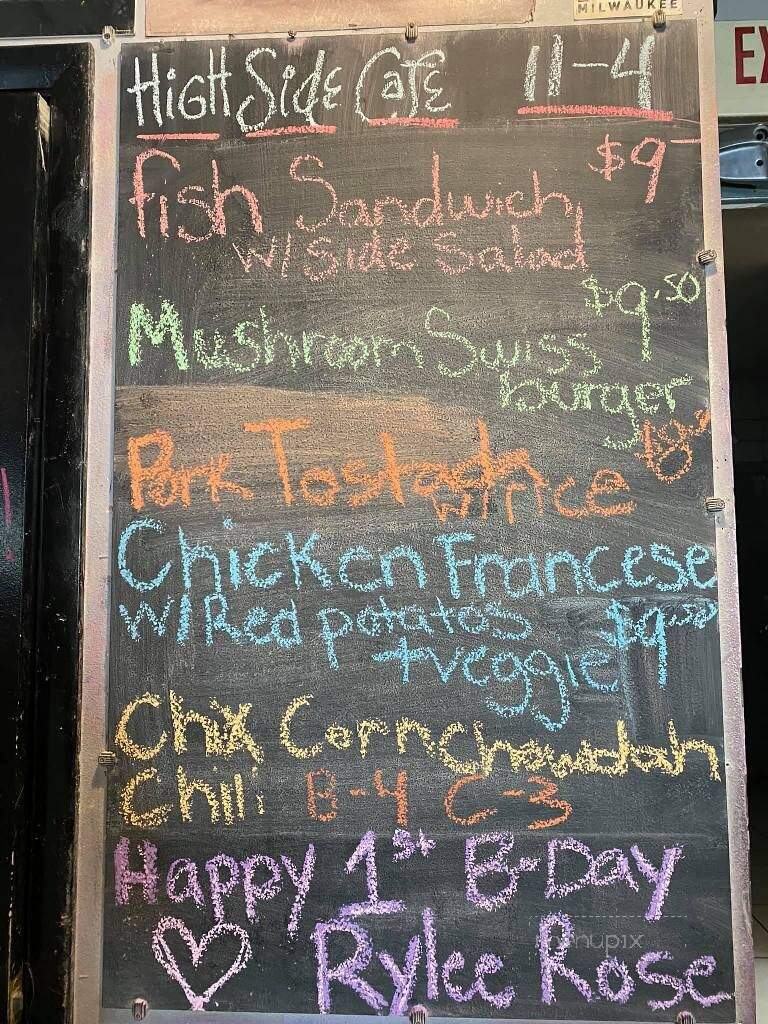 MILWAUKEE
EX
HiGH Side CafE 11-4
fish Sandwich $9-
w/ side Salad
$9.50
Mushroom Swiss
burger
Pork Tostada $8
w/ rice
Chicken Francese
w/ Red potatos $9.50
+veggie
Chix Corn Chowdah
Chili B-4 C-3
Happy 1st B-Day
Rylee Rose
menupix